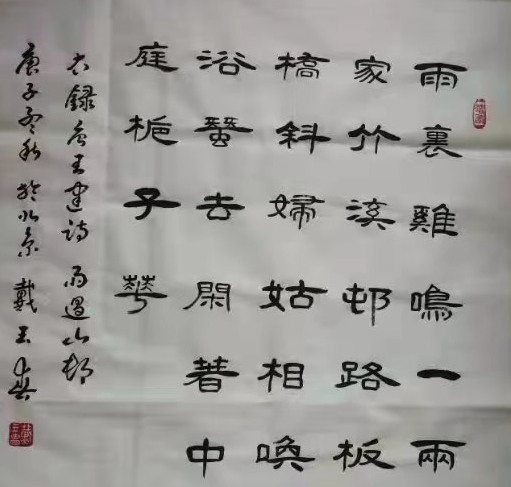 雨裏雞鳴一兩
家竹溪邨路板
橋斜婦姑相喚
浴蠶去閑著中
庭梔子華
右録唐王建詩 雨過山邨
庚子秋於北京 戴